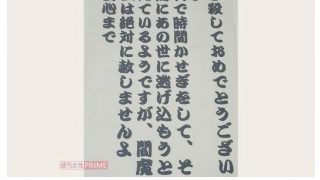 殺しておめでとうござい
で時間かせぎをして、そ
にあの世に逃げ込もうと
ているようですが、閻魔
は絶対に赦しませんよ
心まで
週刊女性PRIME